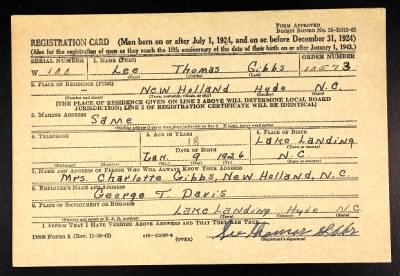 FORM APPROVED
REGISTRATION CARD (Men born on or after July 1, 1924, and on or before December 31, 1924)
(Also for the registration of men as they reach the 18th anniversary of the date of their birth on or after January 1, 1943.)
SERIAL NUMBER 1. NAME (Print) ORDER NUMBER
W Lee Thomas Gibbs
2. PLACE OF RESIDENCE (Print)
New Holland Hyde N.C.
[THE PLACE OF RESIDENCE GIVEN ON LINE 2 ABOVE WILL DETERMINE LOCAL BOARD
JURISDICTION; LINE 2 OF REGISTRATION CERTIFICATE WILL BE IDENTICAL]
3. MAILING ADDRESS
Same
4. TELEPHONE 5. AGE IN YEARS 6. PLACE OF BIRTH
18 Lake Landing
DATE OF BIRTH
Jan. 9 1926 N.C.
7. NAME AND ADDRESS OF PERSON WHO WILL ALWAYS KNOW YOUR ADDRESS
Mrs. Charlotte Gibbs, New Holland, N.C.
8. EMPLOYER'S NAME AND ADDRESS
George T. Davis
9. PLACE OF EMPLOYMENT OR BUSINESS
Lake Landing Hyde N.C.
I AFFIRM THAT I HAVE VERIFIED ABOVE ANSWERS AND THAT THEY ARE TRUE.
DSS Form 1 (OVER) Lee Thomas Gibbs
(Registrant's signature)